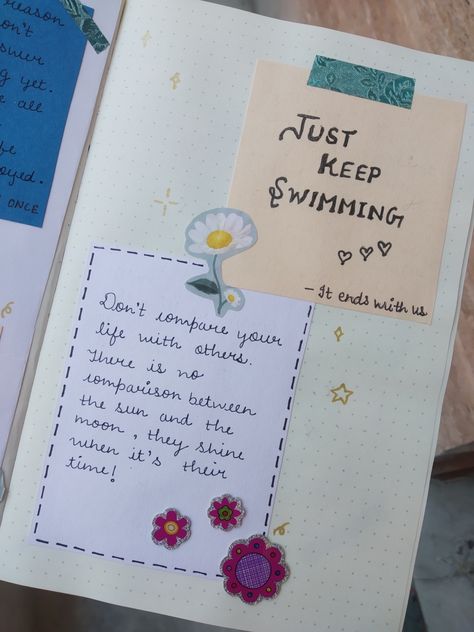 reason
don't
yet.
all
ONCE
JUST
KEEP
SWIMMING
– It ends with us
Don't compare your
life with others.
There is no
comparison between
the sun and the
moon, they shine
when it's their
time!